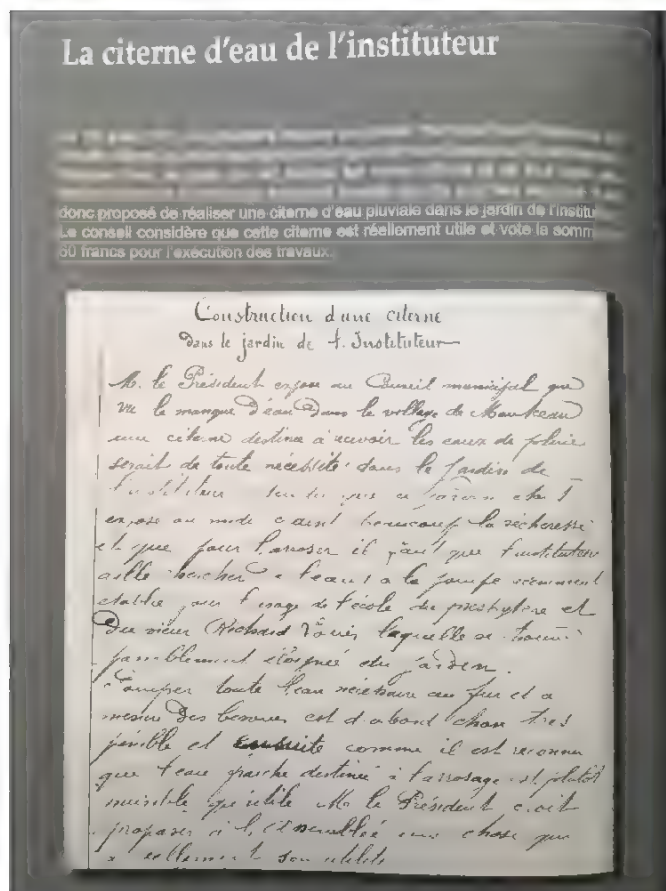 La citerne d'eau de l'instituteur
donc proposé de réaliser une citerne d'eau pluviale dans le jardin de l'institu
Le conseil considère que cette citerne est réellement utile et vote la somm
60 francs pour l'exécution des travaux.
Construction d'une citerne
dans le jardin de l'Instituteur
M. le Président expose au Conseil municipal que
vu le manque d'eau dans le village de
une citerne destinée à recevoir les eaux de pluie
serait de toute nécessité dans le jardin de
l'instituteur que ce jardin étant
exposé au midi craint beaucoup la sécheresse
et que pour l'arroser il faut que l'instituteur
aille chercher l'eau à la pompe récemment
établie pour l'usage de l'école du presbytère et
du sieur Richard Louis laquelle se trouve
passablement éloignée du jardin.
Pomper toute l'eau nécessaire au fur et à
mesure des besoins est d'abord chose très
pénible et ensuite comme il est reconnu
que l'eau fraîche destinée à l'arrosage est plutôt
nuisible qu'utile Mr le Président croit
proposer à l'Assemblée une chose qui
a réellement son utilité